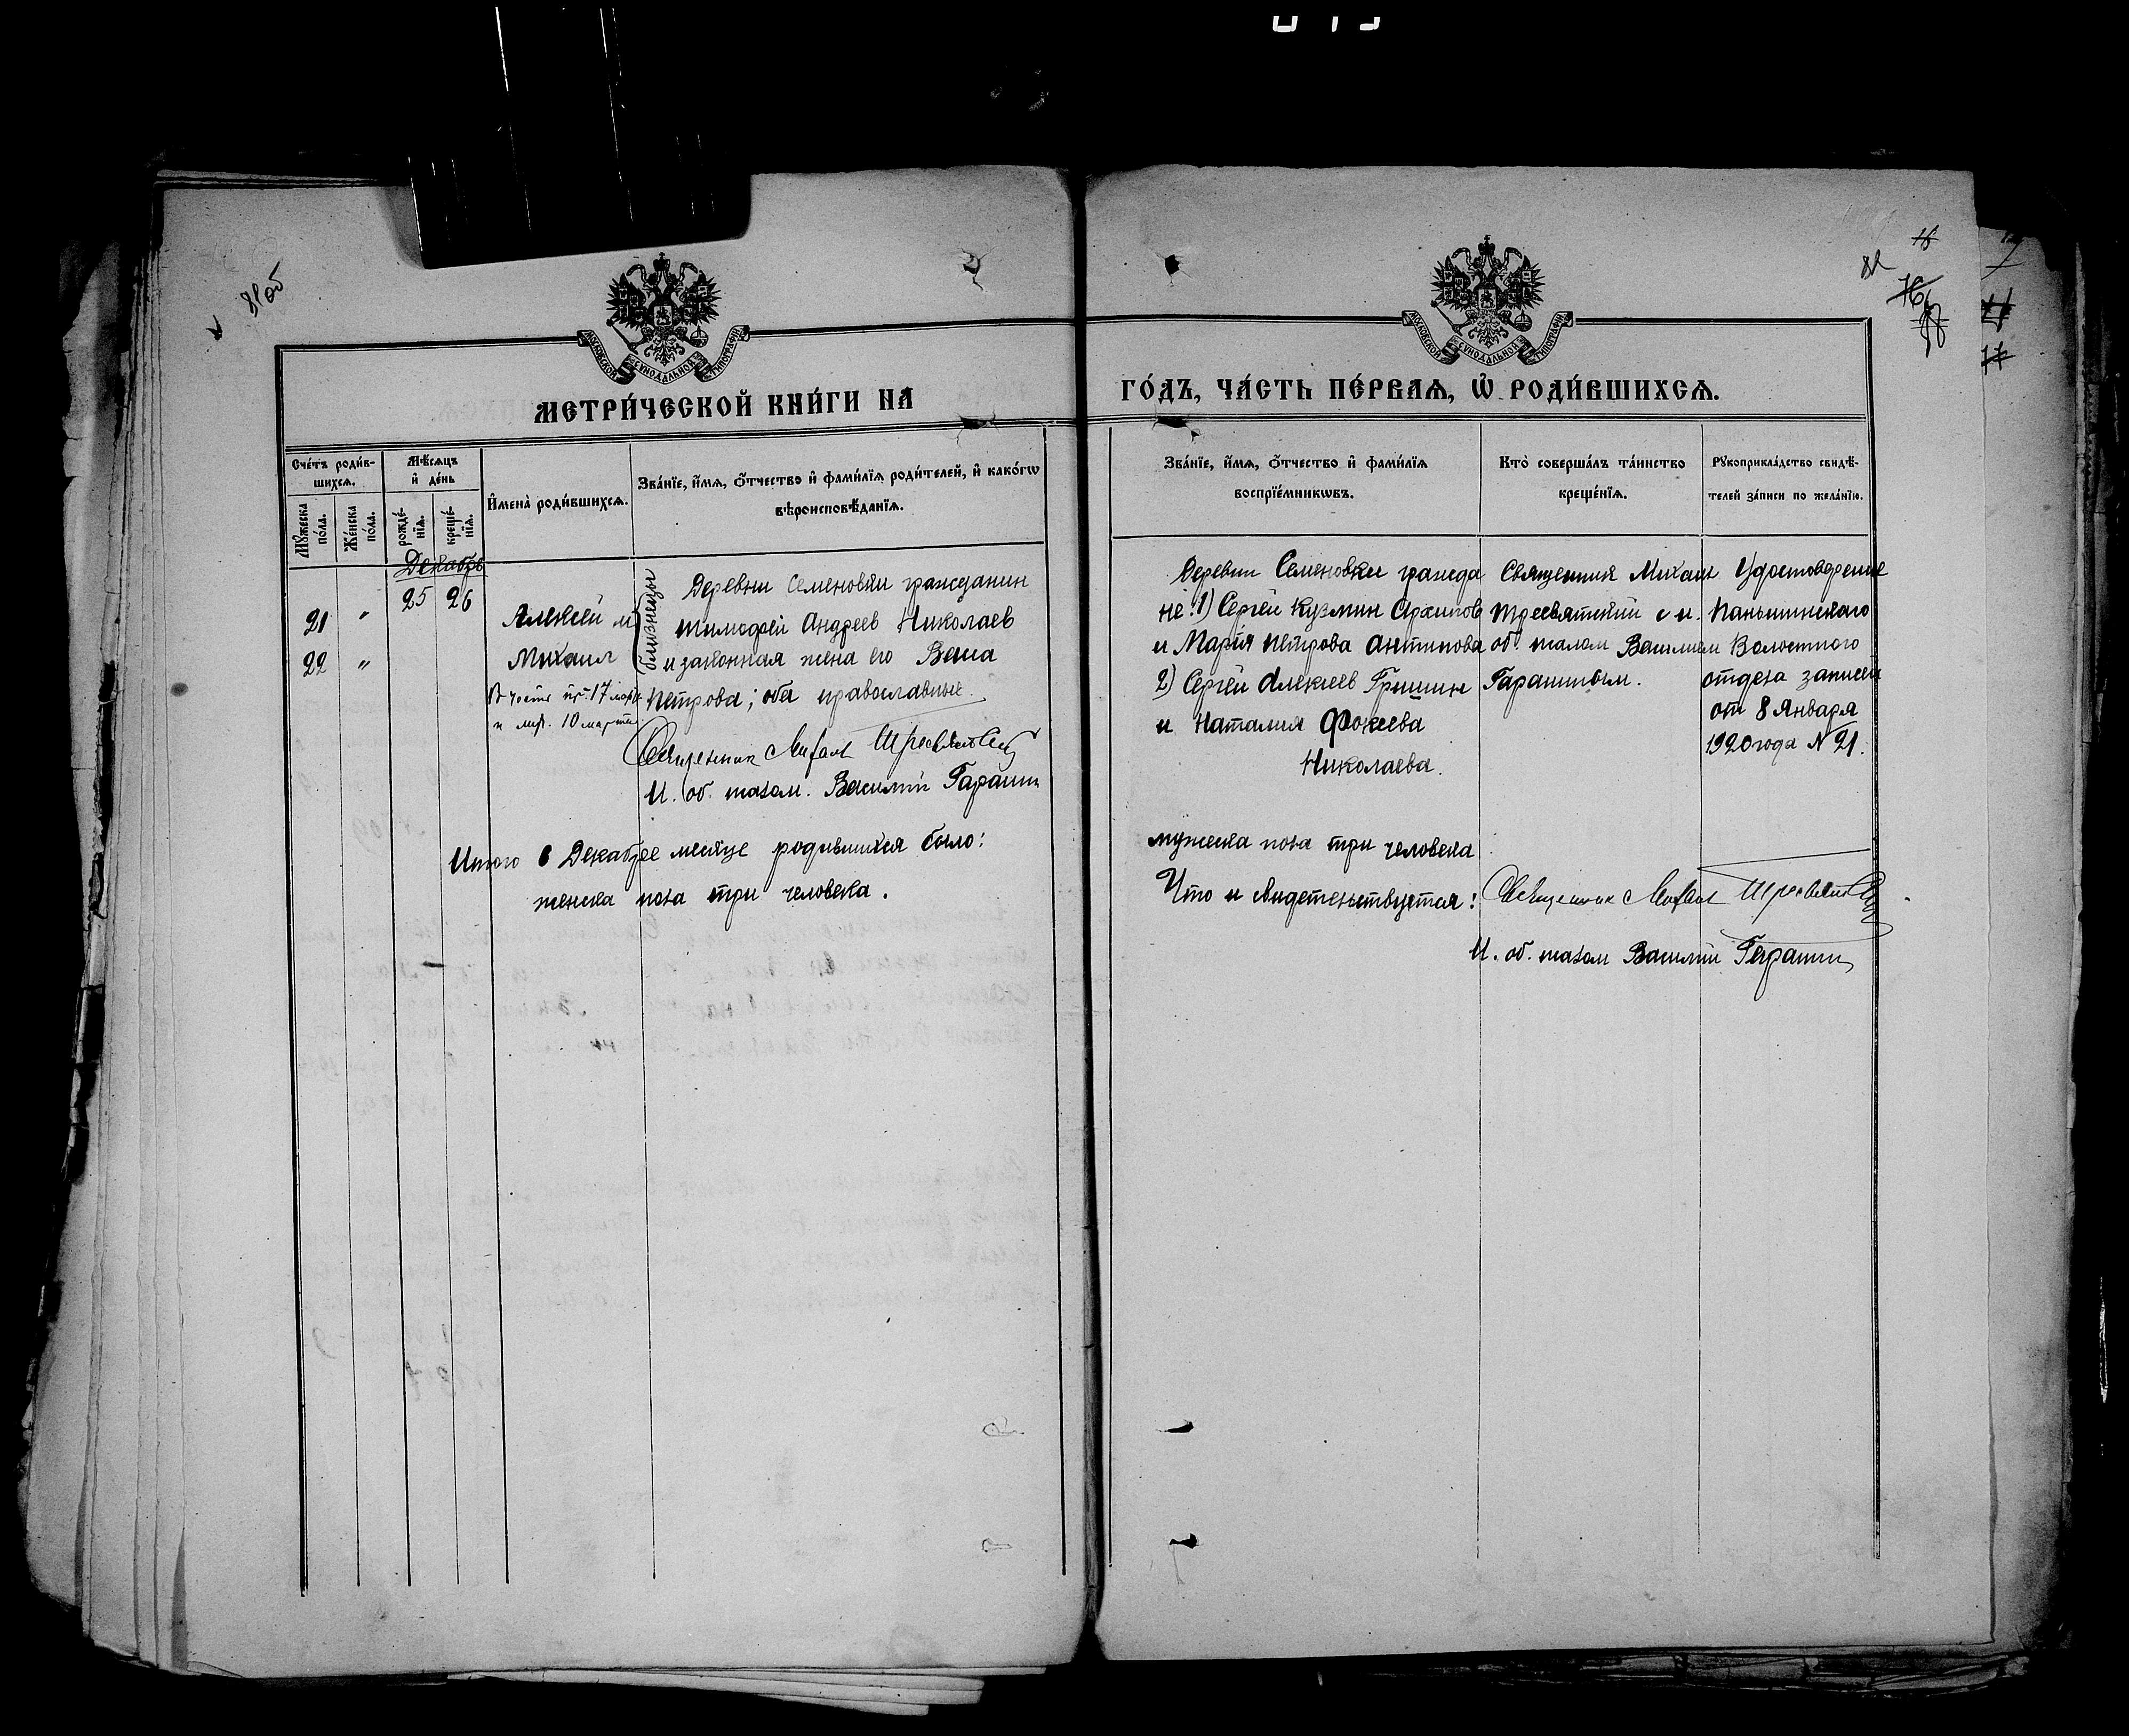 81об
82
МОСКОВСКОЙ СѴНОДАЛЬНОЙ ТИПОГРАФІИ
МОСКОВСКОЙ СѴНОДАЛЬНОЙ ТИПОГРАФІИ
МЕТРИ́ЧЕСКОЙ КНИ́ГИ НА
ГО́ДЪ, ЧА́СТЬ ПЕ́РВАѦ, Ѡ҆ РОДИ́ВШИХСѦ.
Сче́тъ роди́в-
шихсѧ.
Мꙋ́жеска
по́ла.
Же́нска
по́ла.
Мѣ́сѧцъ
и҆ де́нь
рожде́-
нїѧ.
креще́-
нїѧ.
И҆мена̀ роди́вшихсѧ.
Зва́нїе, и҆́мѧ, ѻ҆́тчество и҆ фами́лїѧ роди́телей, и҆ како́гѡ
вѣроисповѣ́данїѧ.
Зва́нїе, и҆́мѧ, ѻ҆́тчество и҆ фами́лїѧ
воспрїе́мникѡвъ.
Кто̀ соверша́лъ та́инство
креще́нїѧ.
Рꙋкоприкла́дство свидѣ́-
телей за́писи по жела́нїю.
Декабрь
21 " 25 26
22 "
Алексей и
Михаил
17 марта
и 10 марта
близнецы
Деревни Семеновки гражданин
Тимофей Андреев Николаев
и законная жена его Васса
Петрова; оба православные.
Священник Михаил Тресвятский
И. об. псалом. Василий Гарашин
Деревни Семеновки гражда
не: 1) Сергей Кузмин Архипов
и Мария Петрова Антипова
2) Сергей Алексеев Гришин
и Наталия Фокеева
Николаева.
Священник Михаил
Тресвятский с и.
об. псалом Василием
Гарашиным.
Удостоверение
Паньшинского
Волостного
отдела записей
от 8 Января
1920 года N 21.
Итого в Декабре месяце родившихся было:
мужеска пола три человека
женска пола три человека.
Что и свидетельствуется: Священник Михаил Тресвятский
И. об. псалом Василий Гарашин